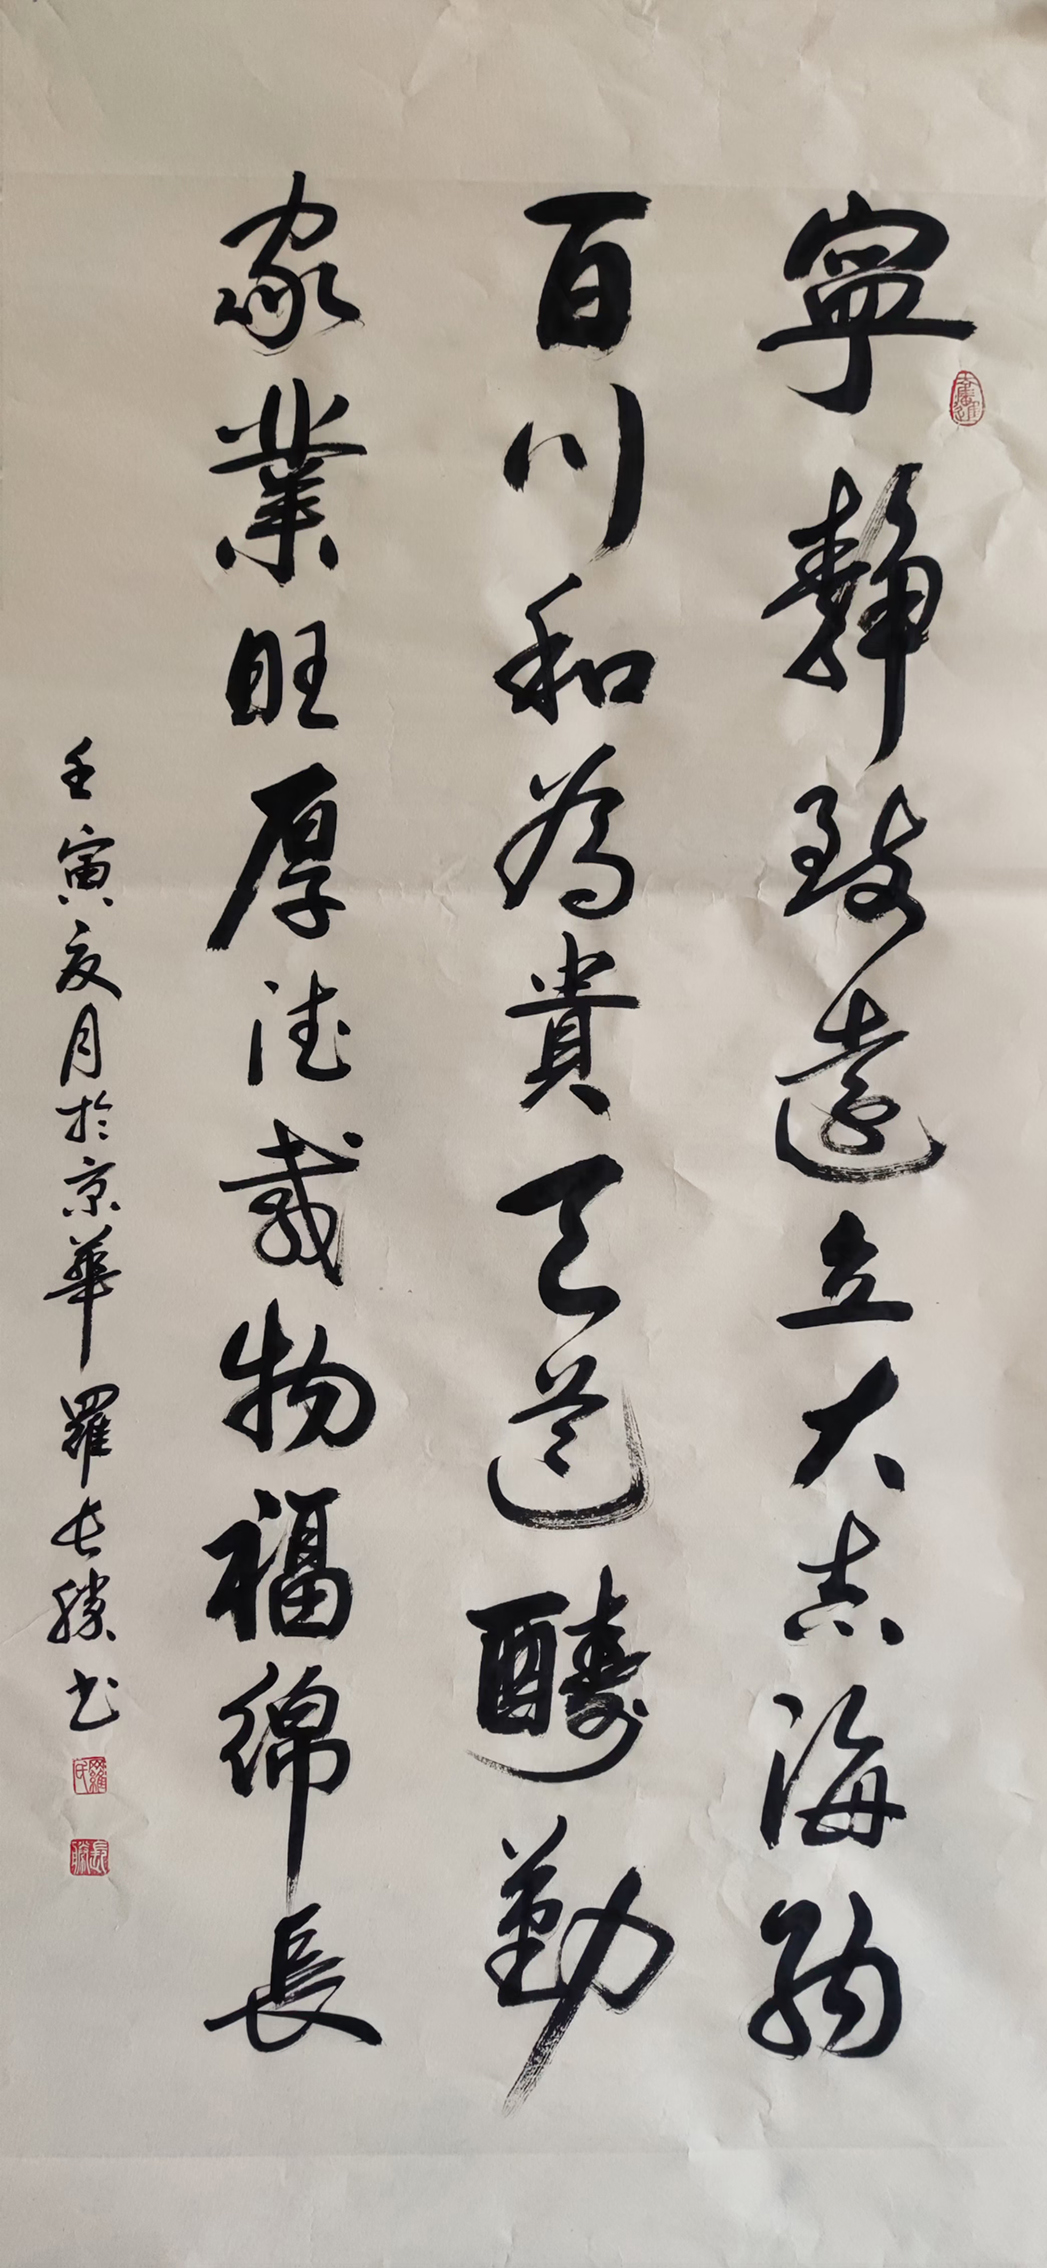 寧静致遠立大志海納
百川和為貴天道酬勤
家業旺厚德載物福綿長
壬寅夏月於京華羅長勝书
羅氏
長勝